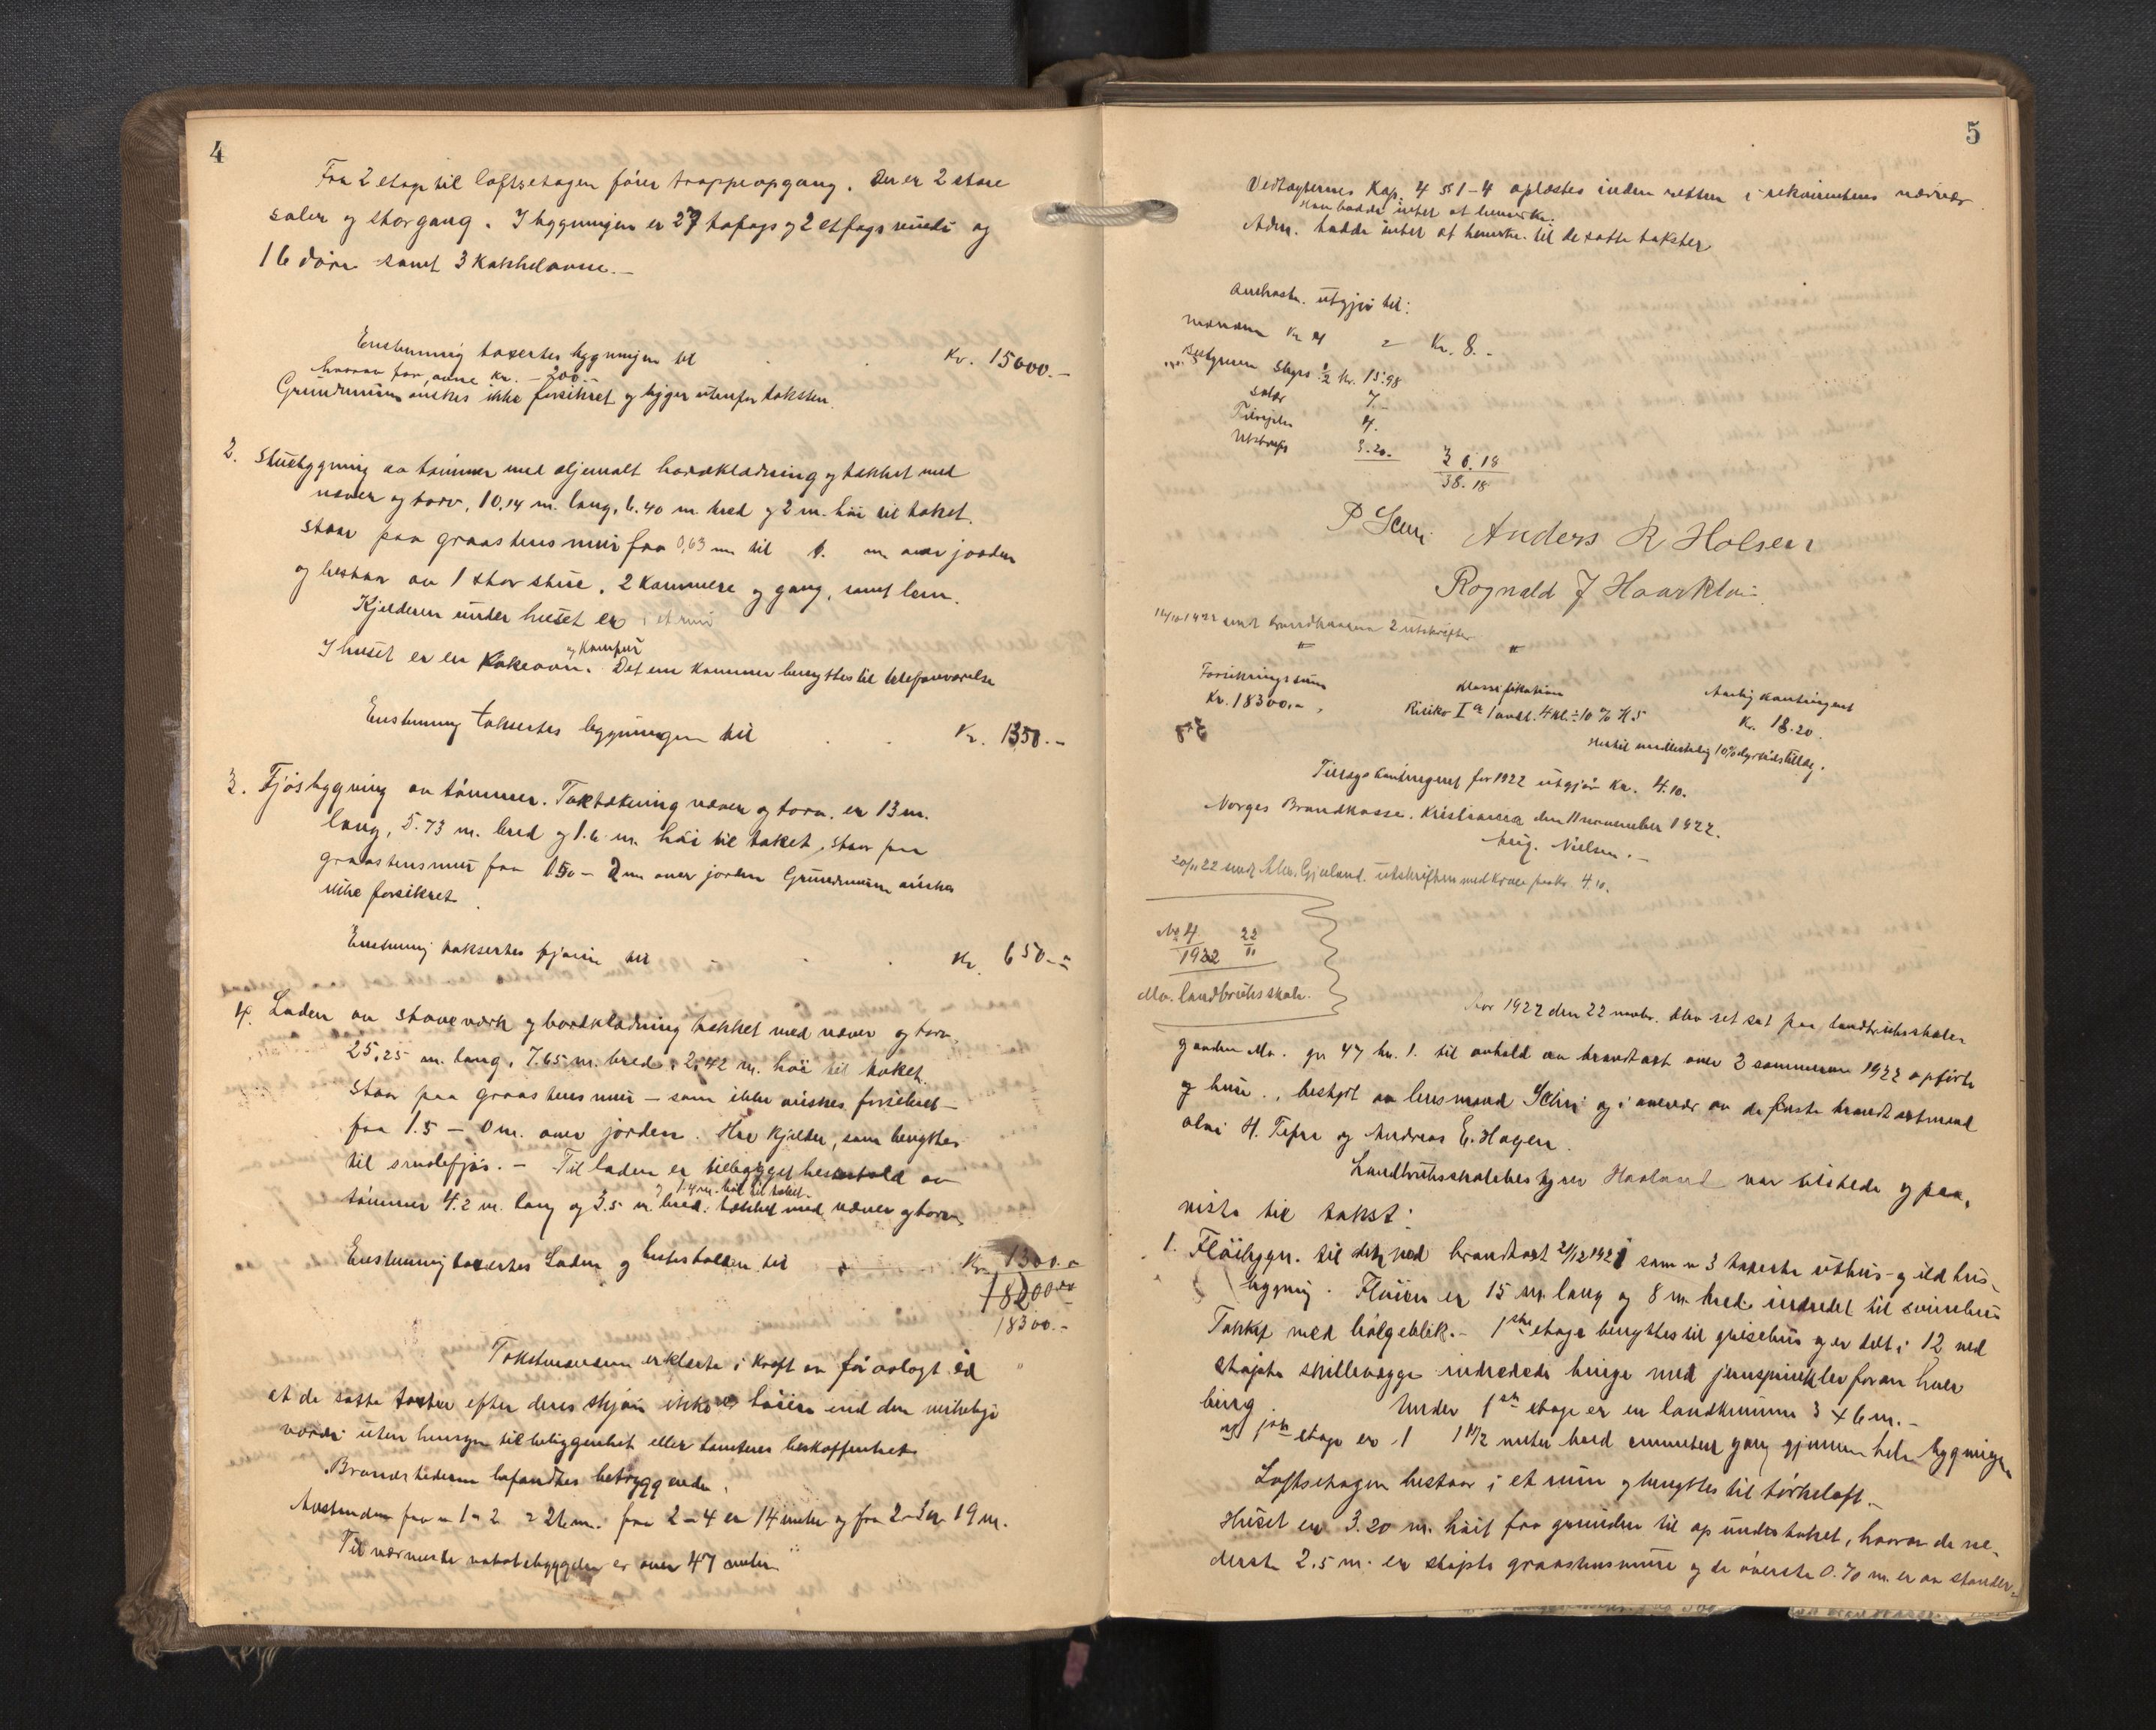 4
Fra 2 etage til loftsetagen fører trappeopgang. Der er 2 store
saler og storgang. I bygningen er 27 tofags og 2 etfags vindu og
16 døre samt 3 kakkelovne.-
Enstemmig taxertes bygningen til Kr. 15000.-
hvorav for ovne kr. - 200.-
Grundmuren ønskes ikke forsikret og ligger utenfor taksten.
2. Stuebygning av tømmer med oljemalt bordklædning og tækket med
næver og torv, 10,14 m. lang, 6.40 m. bred og 2 m. høi til taket,
staar paa graastensmur fra 0,63 m til 1. m over jorden
og bestaar av 1 stor stue, 2 kammere og gang, samt lem.
Kjelderen under huset er i et rum
og komfur
I huset er en Kakeovn. Det ene kammer benyttes til telefonværelse
Enstemmig taksertes bygningen til Kr. 1350.-
3. Fjøsbygning av tømmer. Taktækning næver og torv. er 13 m.
lang, 5.73 m. bred og 1.6 m. høi til taket, staar paa
graastensmur fra 0.50 - 2 m over jorden Grundmuren ønskes
ikke forsikret.
Enstemmig taksertes fjøsen til Kr. 650.-
4. Laden av staveverk og bordklædning tækket med næver og torv.
25,25 m. lang, 7.65 m. bred, 2,42 m. høi til taket.
Staar paa graastensmur - som ikke ønskes forsikret -
fra 1.5 - 0 m. over jorden. Har kjelder, som benyttes
til smalefjøs. - Til laden er tilbygget hestestald av
og 1.4 m. høi til taket.
tømmer 4.2 m. lang og 3.5 m. bred, tækket med næver og torv.
Enstemmig taxertes Laden og hestestalden til Kr. 1300.-
18200.00
18300.-
Takstmændene erklærte i kraft av før avlagt ed
at de satte takster efter deres skjøn ikke er høiere end den virkelige
værdi uten hensyn til beliggenhet eller tomtens beskaffenhet.
Brandstederne befandtes betryggende.
Avstanden fra 1-2 = 26 m. fra 2-4 er 14 meter og fra 2-3 er 19 m.
Til nærmeste nabobebyggelse er over 47 meter
5
Vedtægternes Kap. 4 § 1-4 oplæstes inden retten i rekvirentens nærvær
Han hadde intet at bemerke.
Adm. hadde intet at bemerke til de satte takster
Omkostn. utgjør til:
mændene Kr 4 = Kr. 8.-
bestyreren Skyss 1/2 Kr. 15.98
Salær 7.-
Tilsigelse 4.
Utskrifts 3.20. 30.18
38.18
P Scen. Anders R Holsen
Rognald J Haarklau.
14/10 1922 sendt brandkassen 2 utskrifter
" "
Forsikringssum Klassifikation Aarlig Kontingent
Kr. 18300.- Risiko I a 1 avd. 4 kl. ÷ 10 % H 5 Kr. 18.20.
Hertil midlertidig 10% dyrtidstillæg.
Tillægskontingent for 1922 utgjør Kr. 4.10.
Norges Brandkasse. Kristiania den 11 november 1922.
Aug. Nielsen.-
20/11 22 sendt Alex. Gjeiland. utskriften med krav paa kr. 4.10.
No 4 22
1922 11
Mo. landbruksskole.
Aar 1922 den 22 novbr. blev ret sat paa landbruksskolen
gaarden Mo. gr 47 br. 1. til avhold av brandtakst over 3 sommeren 1922 opførte
huse., bestyrt av lensmand Schei og i overvær av de faste brandtakstmænd
Olai H. Tefre og Andreas E. Hagen.
Landbruksskolebestyrer Haaland var tilstede og paa-
viste til takst:
1. Fløibygn. til det ved brandtakst 21/12 1921 som nr 3 taxerte uthus- og ildhus-
bygning. Fløien er 15 m. lang og 8 m. bred indredet til svinehus
Tækket med bølgeblik.- 1ste etage benyttes til grisehus og er delt i 12 ved
støpte skillevægge indredede binge med jernsprinkler foran hver
bing. Under 1ste etage er en landkumme 3 x 6 m.-
Loftsetagen bestaar i et rum og benyttes til tørkeloft.-
Huset er 3.20 m. høit fra grunden til op under taket, hvorav de ne-
derste 2.5 m. er støpte graastensmure og de øverste 0.70 m. er av stender-